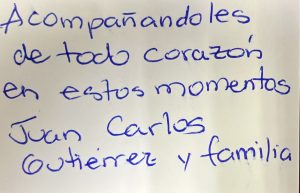 Acompañandoles
de todo corazón
en estos momentos
Juan Carlos
Gutiérrez y familia